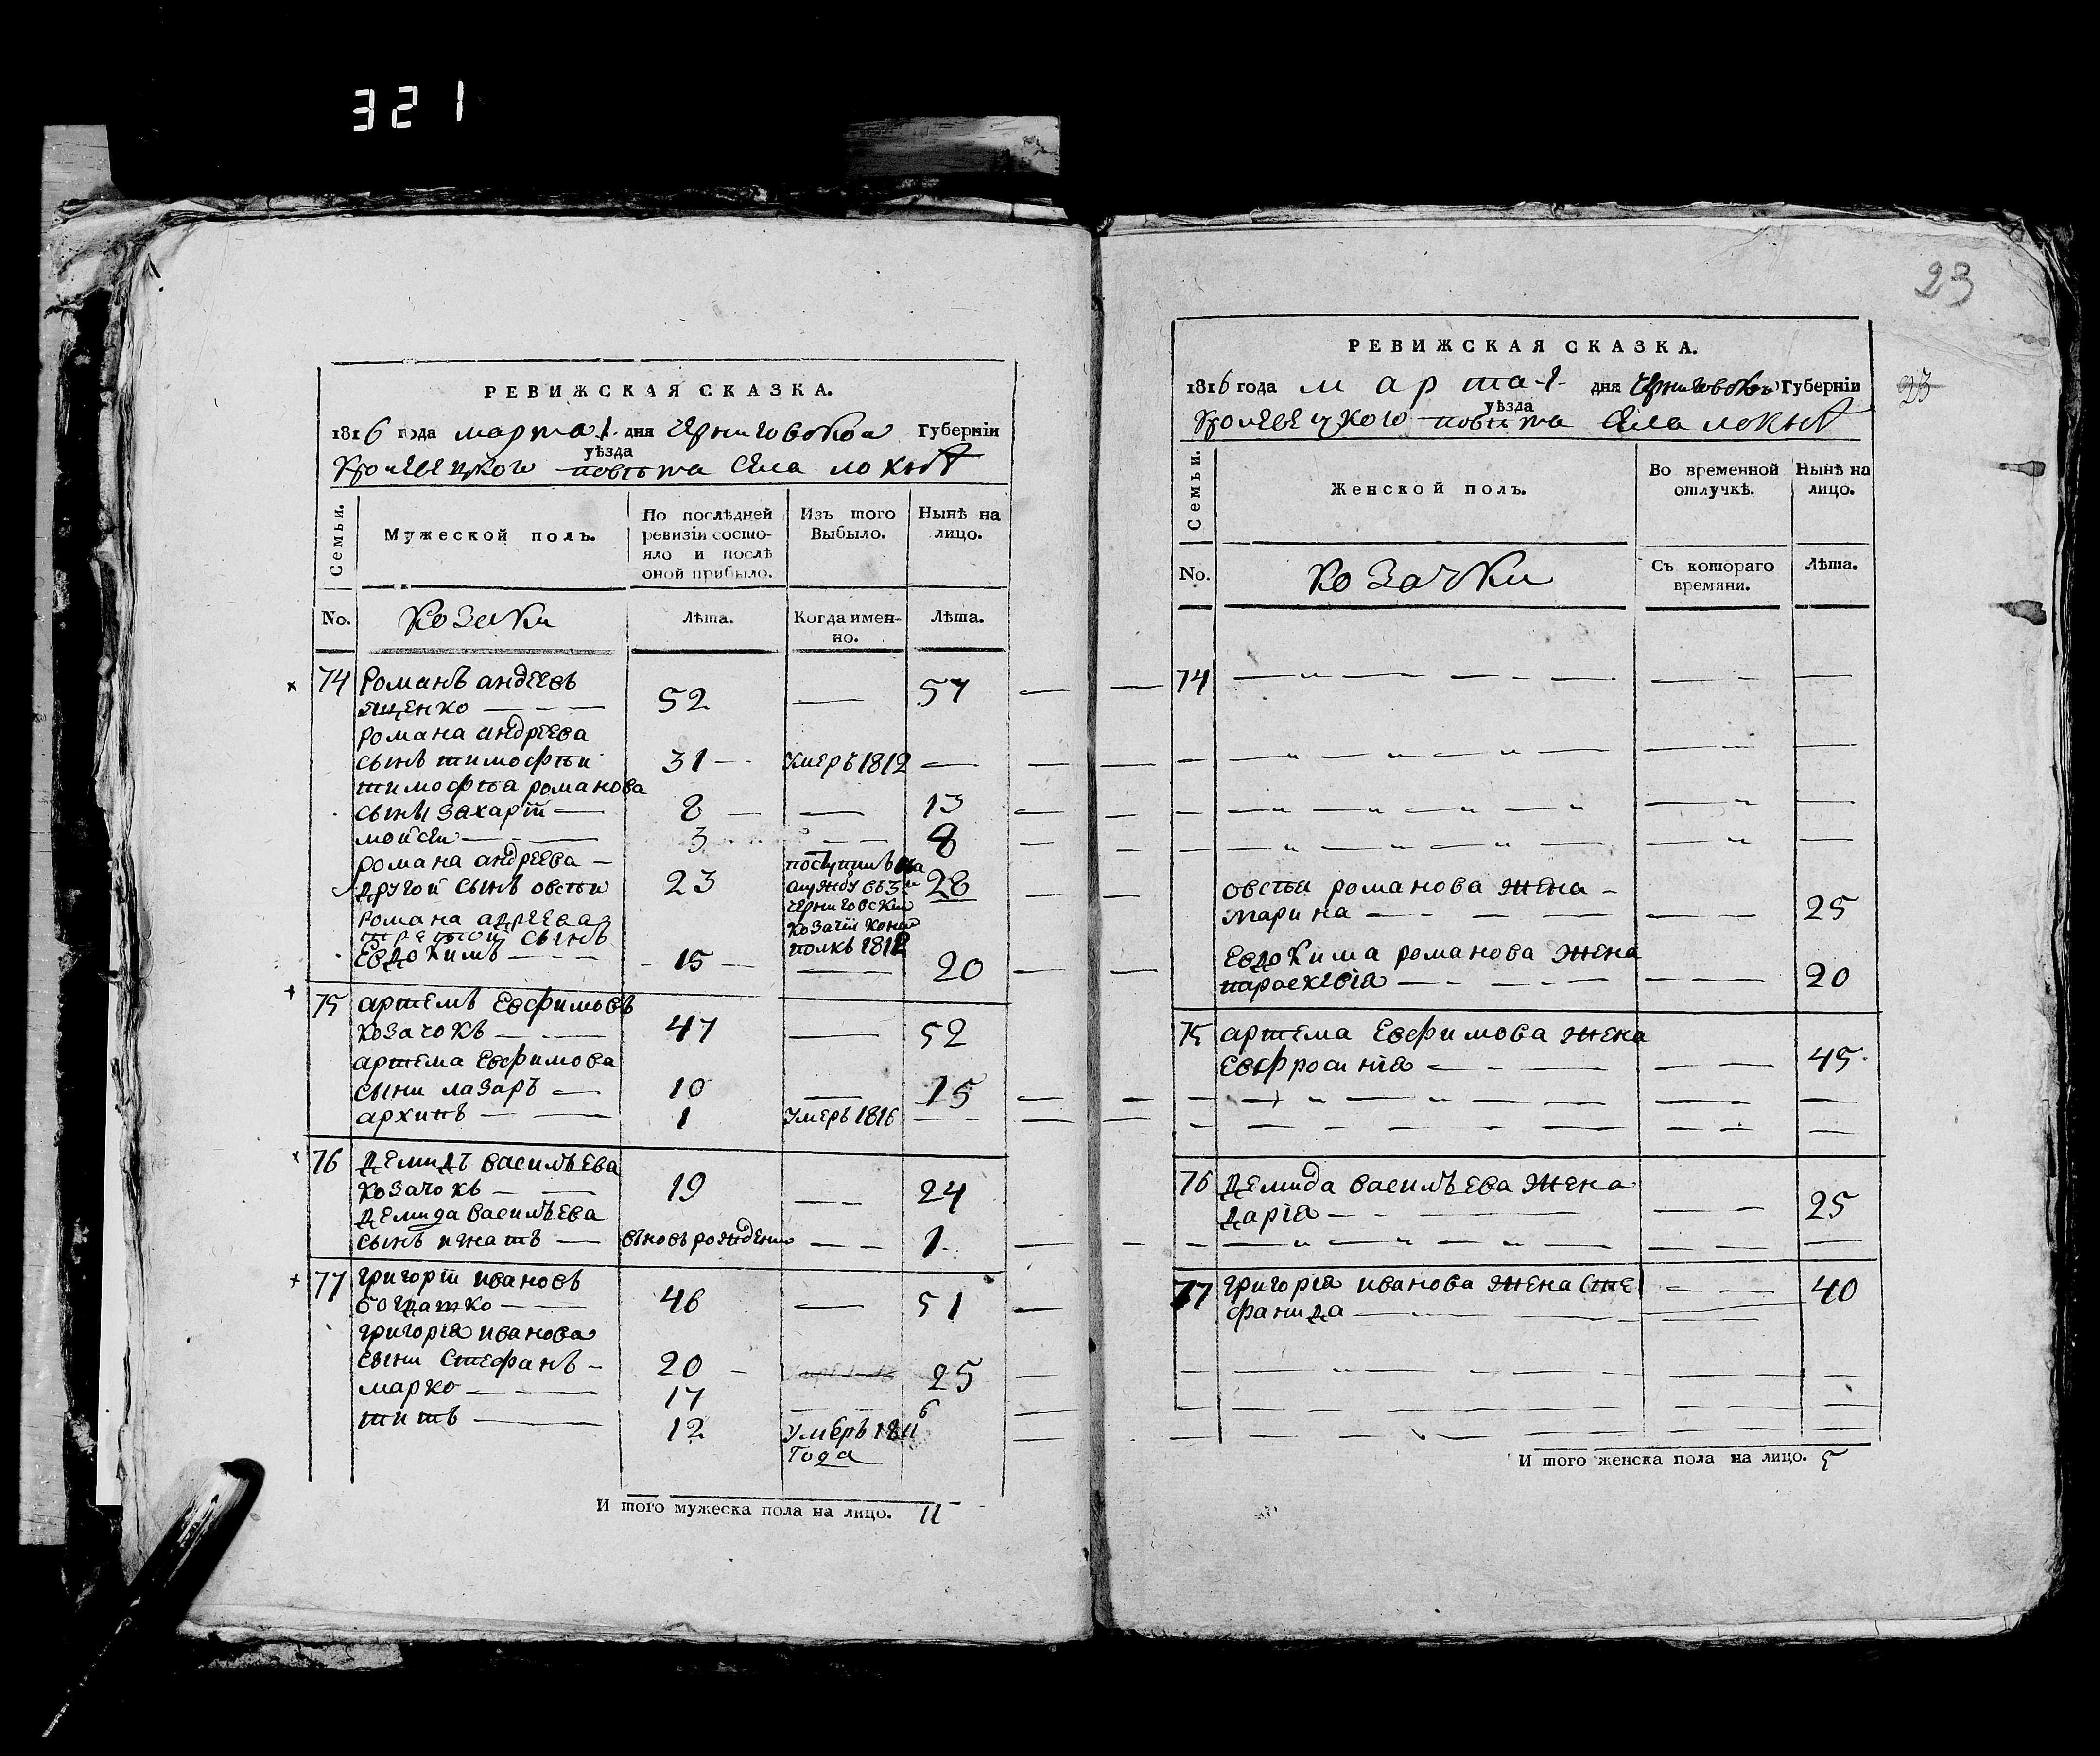 321
РЕВИЖСКАЯ СКАЗКА.
1816 года марта 1. дня Черниговской Губерніи
уѣзда
Кролевецкого повѣта Села локнѣ
Семьи.
Мужеской полъ.
По послѣдней ревизіи состо-
яло и послѣ
оной прибыло.
Изъ того
Выбыло.
Нынѣ на
лицо.
No.
Козаки
Лѣта.
Когда имен-
но.
Лѣта.
74 Романъ андреевъ
ященко 52 57
Романа андреева
сынъ тимофѣй 31 умеръ 1812
тимофѣя романова
сыны захарій 8 13
мойсей 3 8
романа андреева
другой сынъ овсѣй 23 28
поступилъ на
службу въ 3й
черниговский
козачій конный
полкъ 1812
Романа адреева
третой сынъ
Евдокимъ 15 20
75 артемъ Евфимовъ
козачокъ 47 52
артема Евфимова
сыни лазаръ 10 15
архипъ 1 умеръ 1816
76 демидъ васильева
козачокъ 19 24
демида васильева
сынъ игнатъ вновь рожденъ 1.
77 григорій ивановъ
богдатко 46 51
григорія иванова
сыни Стефанъ 20 25
марко 17
титъ 12 умеръ 1811 6
года
И того мужеска пола на лицо. 11
23
РЕВИЖСКАЯ СКАЗКА.
1816 года марта 1. дня Черниговской Губерніи
23
уѣзда
Кролевецкого повѣта Села локнѣ
Семьи.
Женской полъ.
Во временной
отлучкѣ.
Нынѣ на
лицо.
No.
козачки
Съ котораго
времяни.
Лѣта.
74
овсѣя романова жена
марина 25
Евдокима романова жена
параскевія 20
75 артема Евфимова жена
Евфросинія 45.
76 демида васильева жена
дарія 25
77 григорія иванова жена Сте
фанида 40
И того женска пола на лицо. 5